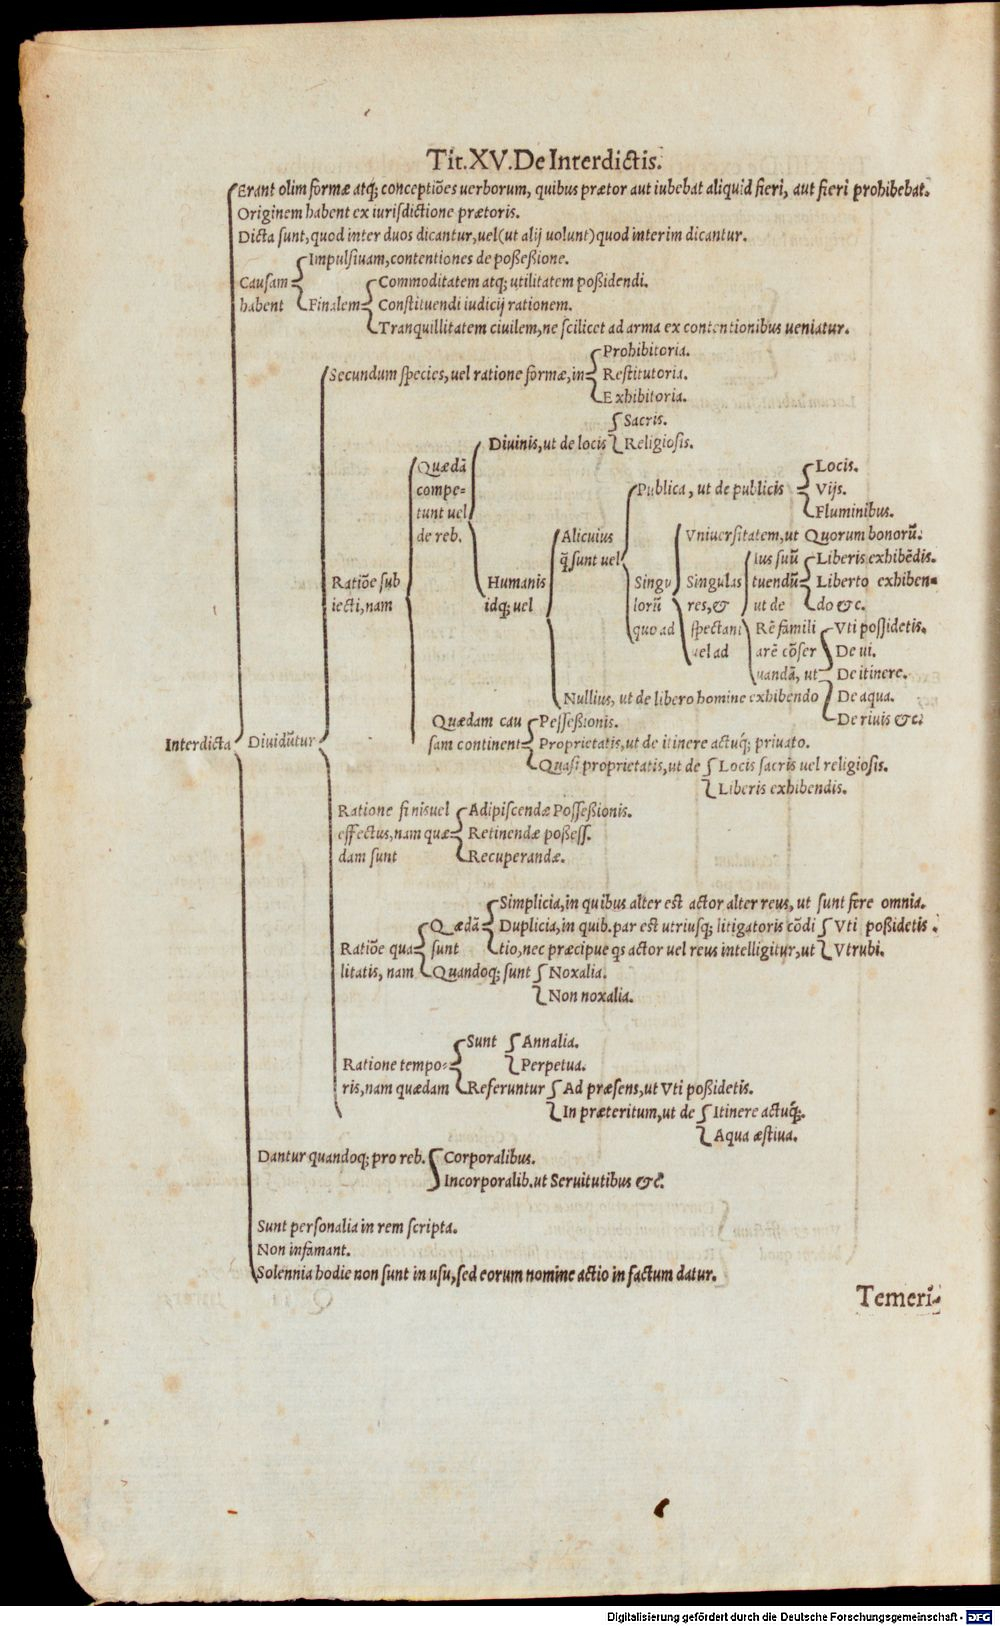 Tit.XV.De Interdictis.
Erant olim formæ atq; conceptiões uerborum, quibus prætor aut iubebat aliquid fieri, aut fieri prohibebat.
Originem habent ex iurisdictione prætoris.
Dicta sunt, quod inter duos dicantur, uel (ut alij uolunt) quod interim dicantur.
Impulsiuam, contentiones de poßeßione.
Causam
habent
Finalem
Commoditatem atq; utilitatem poßidendi.
Constituendi iudicij rationem.
Tranquillitatem ciuilem, ne scilicet ad arma ex contentionibus ueniatur.
Secundum species, uel ratione formæ, in
Prohibitoria.
Restitutoria.
Exhibitoria.
Diuinis, ut de locis
Sacris.
Religiosis.
Quædã
compe=
tunt uel
de reb.
Publica, ut de publicis
Locis.
Vijs.
Fluminibus.
Alicuius
q̃ sunt uel
Vniuersitatem, ut Quorum bonorũ.
Ratiõe sub
iecti, nam
Humanis
idq; uel
Singu
lorũ
quo ad
Singulas
res, &
spectant
uel ad
Ius suũ
tuendũ
ut de
Liberis exhibẽdis.
Liberto exhiben=
do &c.
Rẽ famili
arẽ cõser
uandã, ut
Vti possidetis.
De ui.
De itinere.
De aqua.
De riuis &c.
Nullius, ut de libero homine exhibendo
Interdicta
Diuidũtur
Quædam cau
sam continent
Possessionis.
Proprietatis, ut de itinere actuq́; priuato.
Quasi proprietatis, ut de
Locis sacris uel religiosis.
Liberis exhibendis.
Ratione finis uel
effectus, nam quæ
dam sunt
Adipiscendæ Possessionis.
Retinendæ poßess.
Recuperandæ.
Ratiõe qua
litatis, nam
Quædã
sunt
Simplicia, in quibus alter est actor alter reus, ut sunt fere omnia.
Duplicia, in quib. par est utriusq; litigatoris cõdi
tio, nec præcipue qs actor uel reus intelligitur, ut
Vti poßidetis.
Vtrubi.
Quandoq; sunt
Noxalia.
Non noxalia.
Ratione tempo=
ris, nam quædam
Sunt
Annalia.
Perpetua.
Referuntur
Ad præsens, ut Vti poßidetis.
In præteritum, ut de
Itinere actuq́;.
Aqua æstiua.
Dantur quandoq; pro reb.
Corporalibus.
Incorporalib. ut Seruitutibus &c.
Sunt personalia in rem scripta.
Non infamant.
Solennia hodie non sunt in usu, sed eorum nomine actio in factum datur.
Temeri=
Digitalisierung gefördert durch die Deutsche Forschungsgemeinschaft - DFG